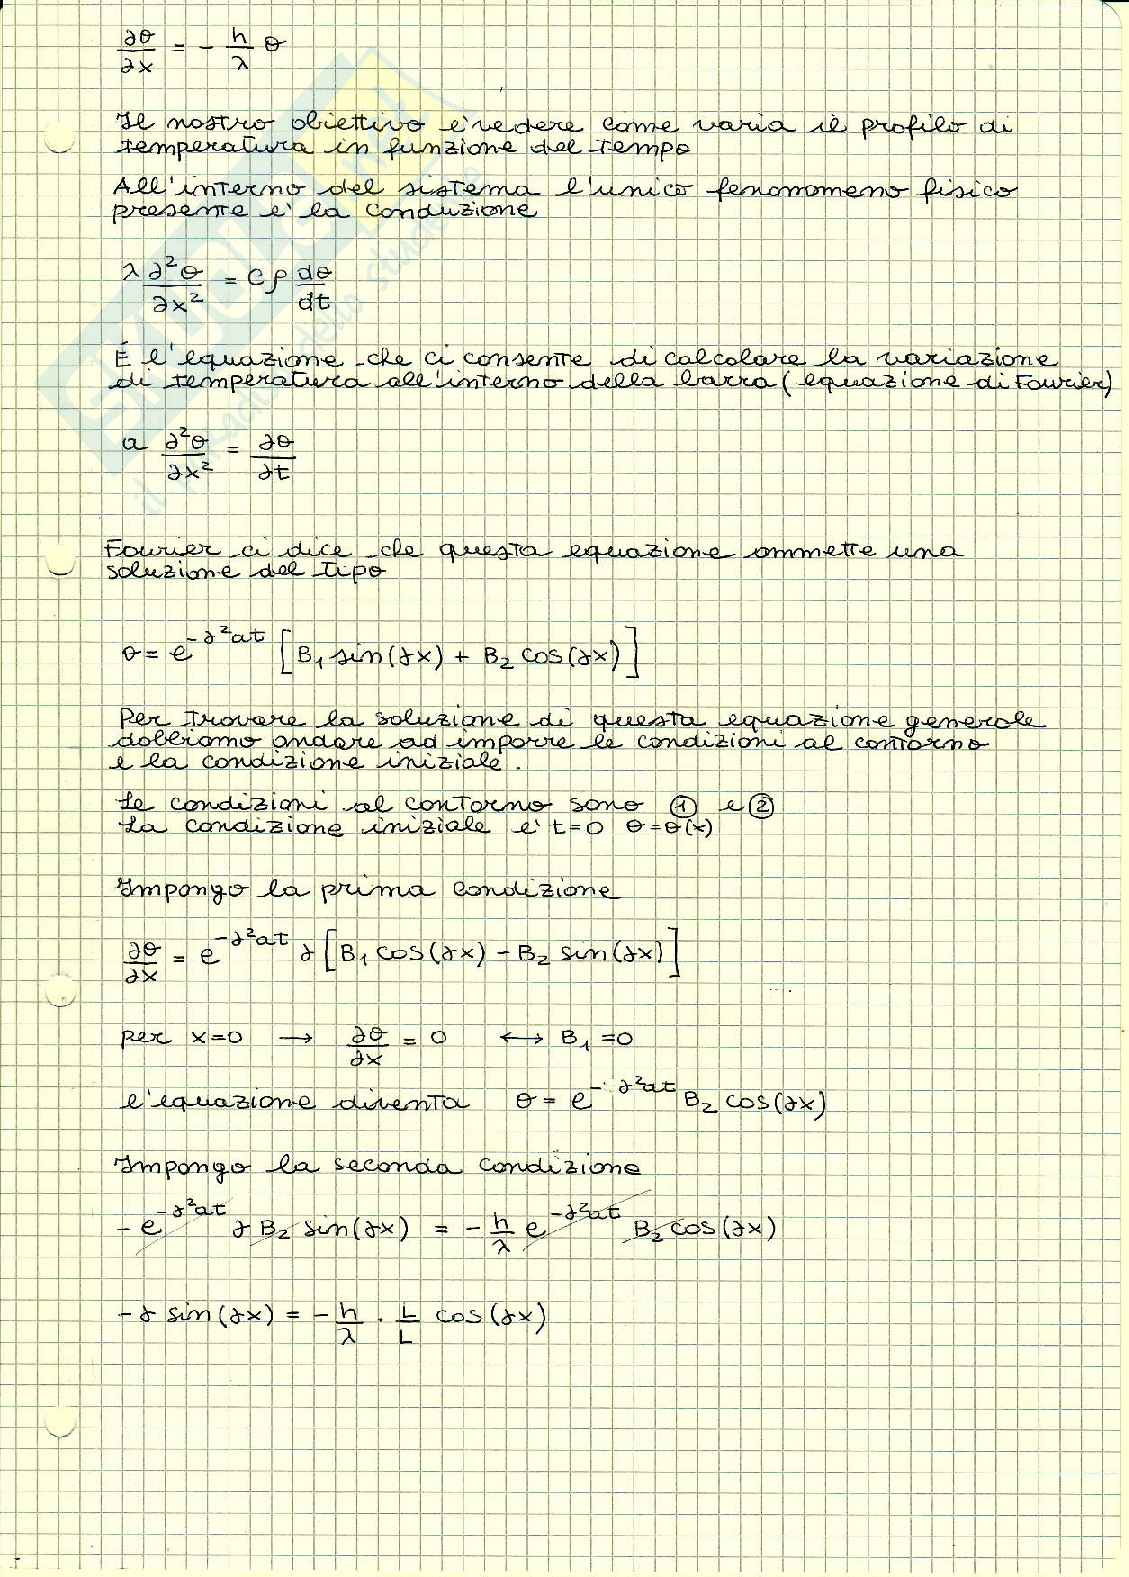 ∂θ/∂x = - h/λ θ
Il nostro obiettivo e' vedere come varia il profilo di
temperatura in funzione del tempo
All'interno del sistema l'unico fenomomeno fisico
presente e' la conduzione
λ ∂²θ/∂x² = cρ dθ/dt
É l'equazione che ci consente di calcolare la variazione
di temperatura all'interno della barra (equazione di Fourier)
a ∂²θ/∂x² = ∂θ/∂t
Fourier ci dice che questa equazione ammette una
soluzione del tipo
θ = e^{-γ²at} [B₁ sin(γx) + B₂ cos(γx)]
Per trovare la soluzione di questa equazione generale
dobbiamo andare ad imporre le condizioni al contorno
e la condizione iniziale.
Le condizioni al contorno sono ① e ②
La condizione iniziale e' t=0 θ=θ(x)
Impongo la prima condizione
∂θ/∂x = e^{-γ²at} γ [B₁ cos(γx) - B₂ sin(γx)]
per x=0 → ∂θ/∂x = 0 ↔ B₁=0
l'equazione diventa θ = e^{-γ²at} B₂ cos(γx)
Impongo la seconda condizione
- e^{-γ²at} γ B₂ sin(γx) = - h/λ e^{-γ²at} B₂ cos(γx)
- γ sin(γx) = - h/λ · L/L cos(γx)